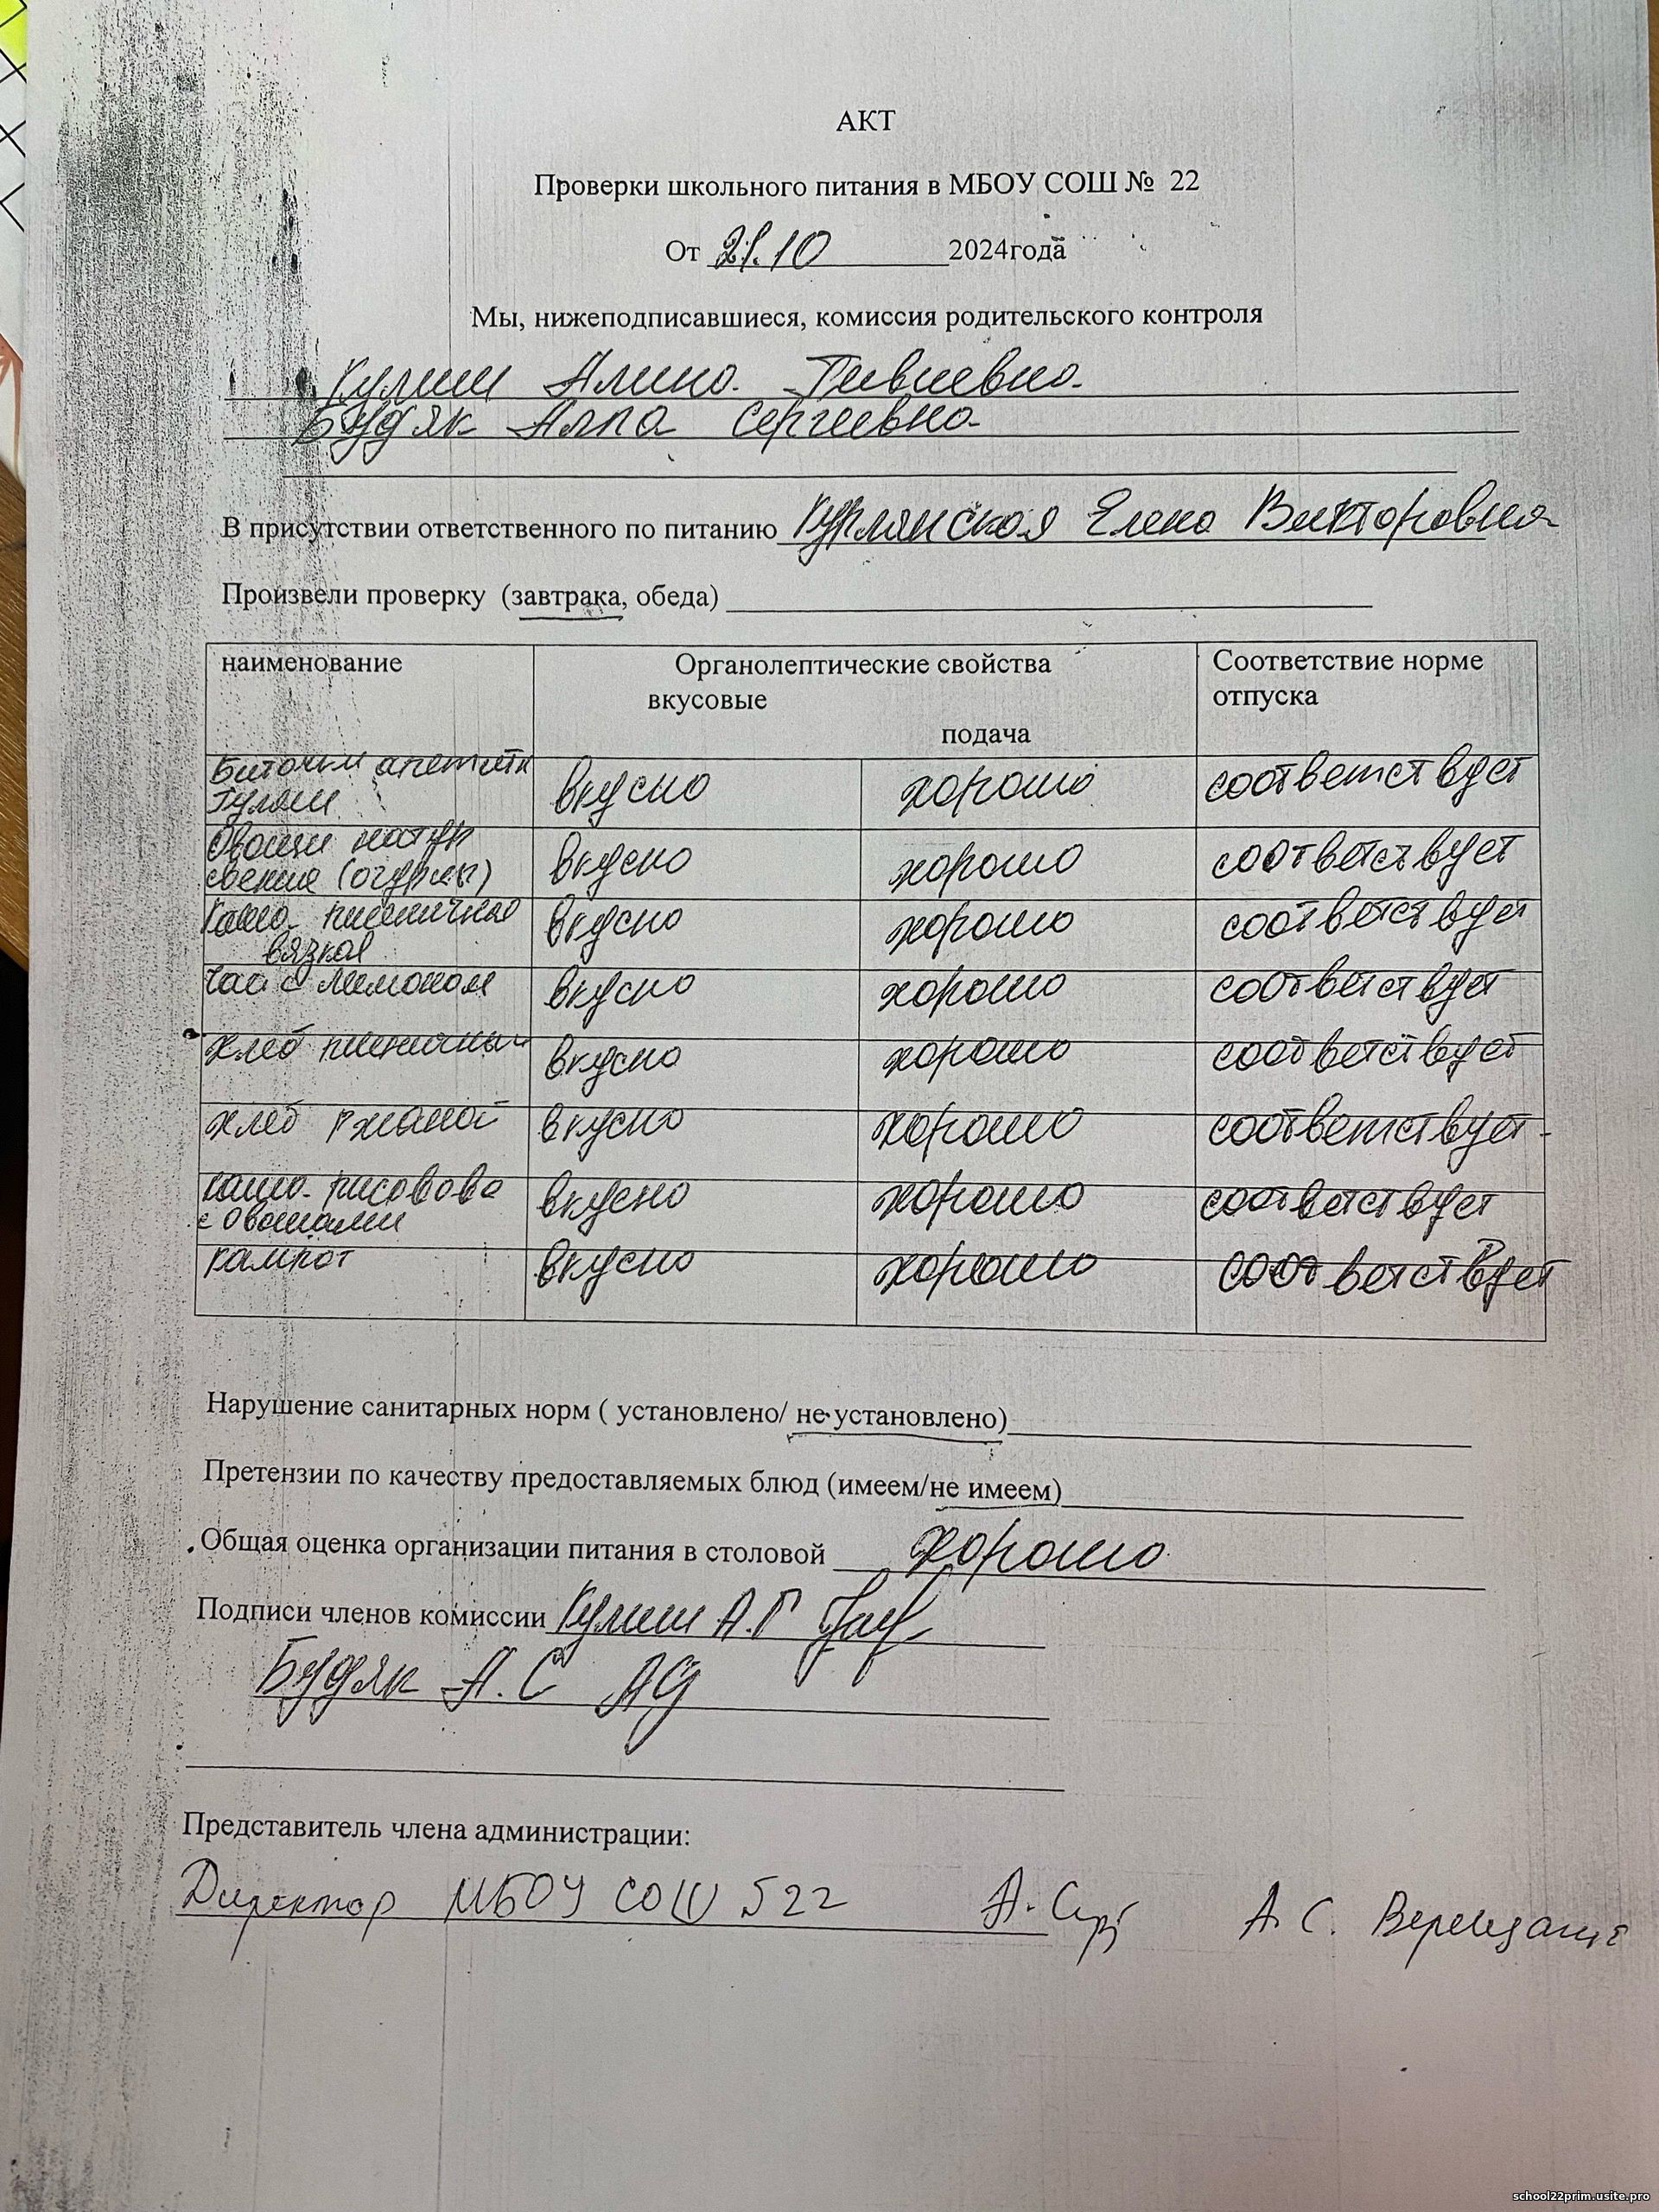 АКТ
Проверки школьного питания в МБОУ СОШ № 22
От 21.10 2024года
Мы, нижеподписавшиеся, комиссия родительского контроля
Кулиш Алина
Будяк Алла Сергеевна
В присутствии ответственного по питанию Елена Викторовна
Произвели проверку (завтрака, обеда)
наименование Органолептические свойства Соответствие норме
вкусовые отпуска
подача
Биточки
гуляш вкусно хорошо соответствует
Овощи натур
свежие (огурцы) вкусно хорошо соответствует
Каша пшеничная
вязкая вкусно хорошо соответствует
Чай с лимоном вкусно хорошо соответствует
хлеб пшеничный вкусно хорошо соответствует
хлеб ржаной вкусно хорошо соответствует
каша рисовова
с овощами вкусно хорошо соответствует
кампот вкусно хорошо соответствует
Нарушение санитарных норм ( установлено/ не установлено)
Претензии по качеству предоставляемых блюд (имеем/не имеем)
Общая оценка организации питания в столовой хорошо
Подписи членов комиссии Кулиш А.Г
Будяк А.С
Представитель члена администрации:
Директор МБОУ СОШ №22 А.С. Верещагина
school22prim.usite.pro